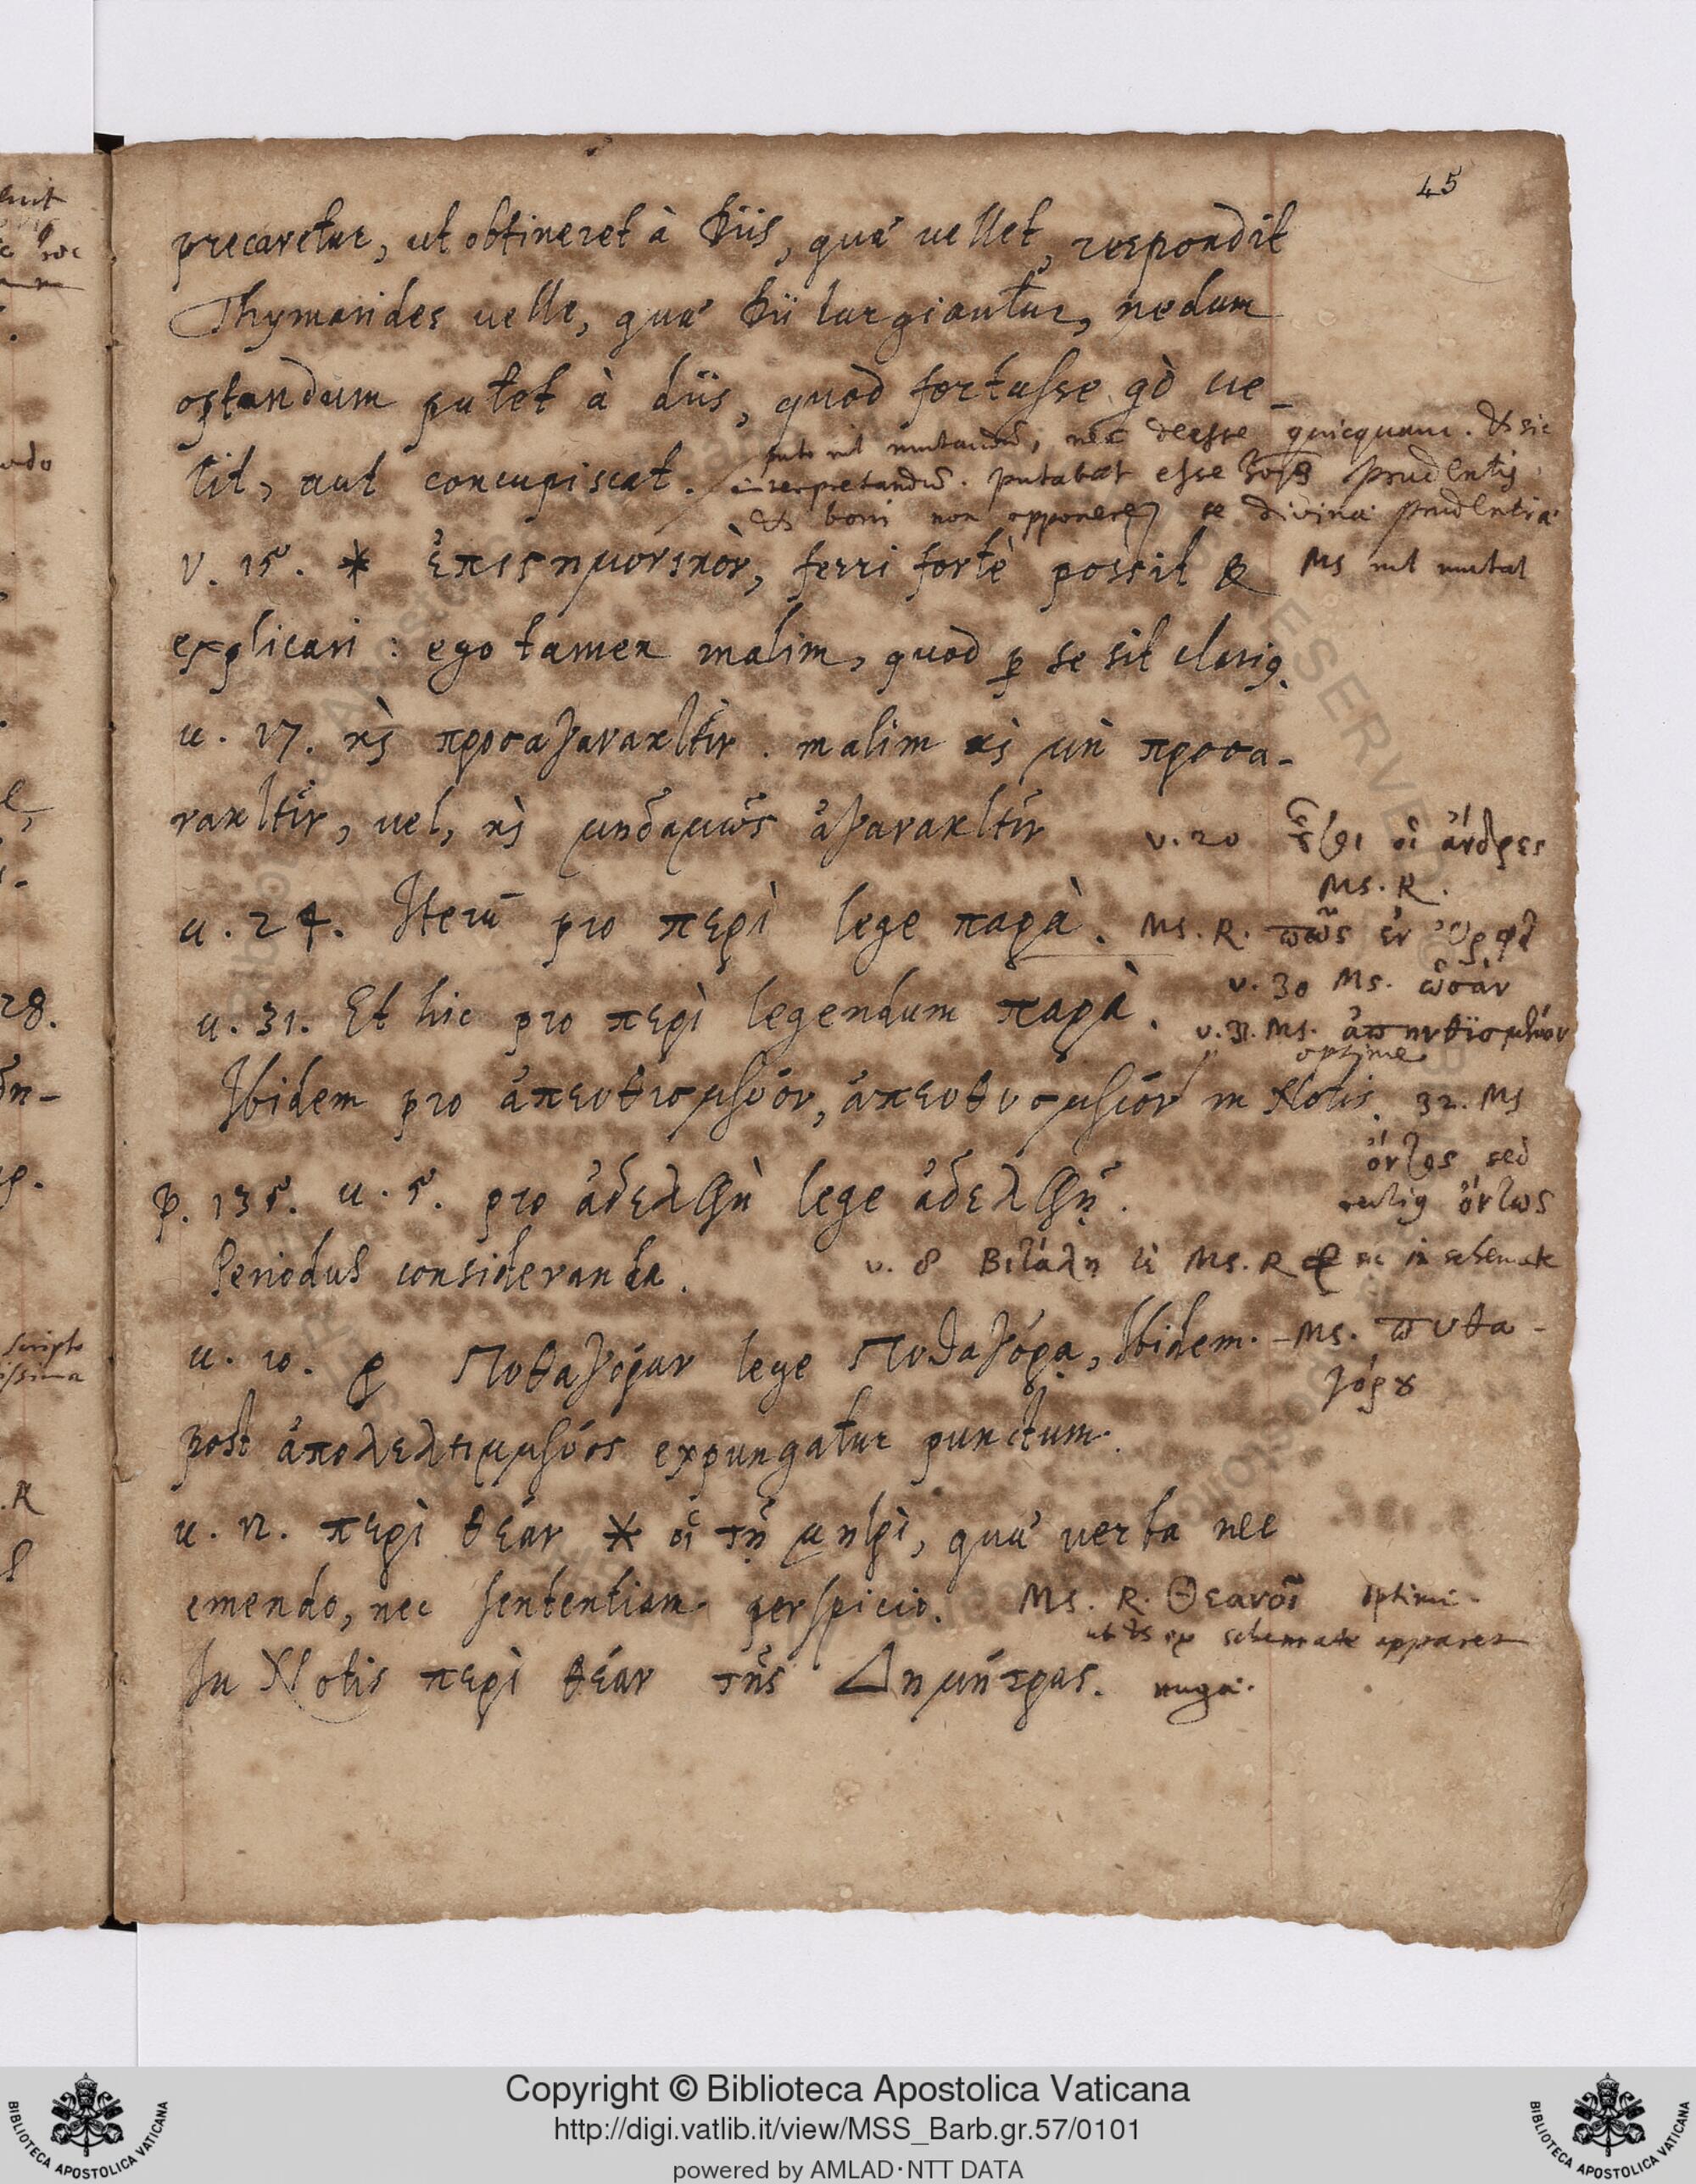 45
precaretur, ut obtineret à Diis, quæ uellet, respondit
Thymarides uelle, quæ Dii largiantur, nedum
optandum putet à diis, quod fortasse qd ue-
lit, aut concupiscat. puto nil mutandū, nec deesse quicquam. & sic
interpretandū. putabat esse prudentis
& boni non opponere se divinæ prudentiæ
v. 15. * ἐπιστημονικὸν, ferri fortè possit & Ms nil mutat
explicari : ego tamen malim, quod p se sit clarig.
u. 17. κὶ προσαγανακτεῖν. malim κὶ μὴ προσα-
νακτεῖν, uel, κὶ μηδαμῶς ἀγανακτεῖν
v. 20 οἱ ἄνδρες
Ms. R.
u. 24. Iterū pro περὶ lege παρὰ. Ms. R. πῶς ἐν
v. 30 Ms. ὡσὰν
u. 31. Et hic pro περὶ legendum παρὰ. v. 31. Ms. ἀπηνθισμένον
optime
Ibidem pro ἀπευθισμένον, ἀπευθυσμένον in Notis. 32. Ms
ὄντος sed
rectig ὄντως
p. 135. u. 5. pro ἀδελφὴ lege ἀδελφῇ.
Periodus consideranda. v. 8 Βιτάλη Ms. R & sic in schemate
u. 10. & Πυθαγόραν lege Πυθαγόρᾳ, Ibidem. - Ms. πυθα-
γόρȣ
post ἀπολελειμμένος expungatur punctum.
u. 12. περὶ θέαν * οἷ τῇ μητρὶ, quæ uerba nec
emendo, nec sententiam perspicio. Ms. R. Θεανοῖ optime.
ut & ex schemate apparet
In Notis περὶ θέαν τῆς Δημήτρας. nugæ.
Copyright © Biblioteca Apostolica Vaticana
http://digi.vatlib.it/view/MSS_Barb.gr.57/0101
powered by AMLAD·NTT DATA
BIBLIOTECA APOSTOLICA VATICANA
BIBLIOTECA APOSTOLICA VATICANA